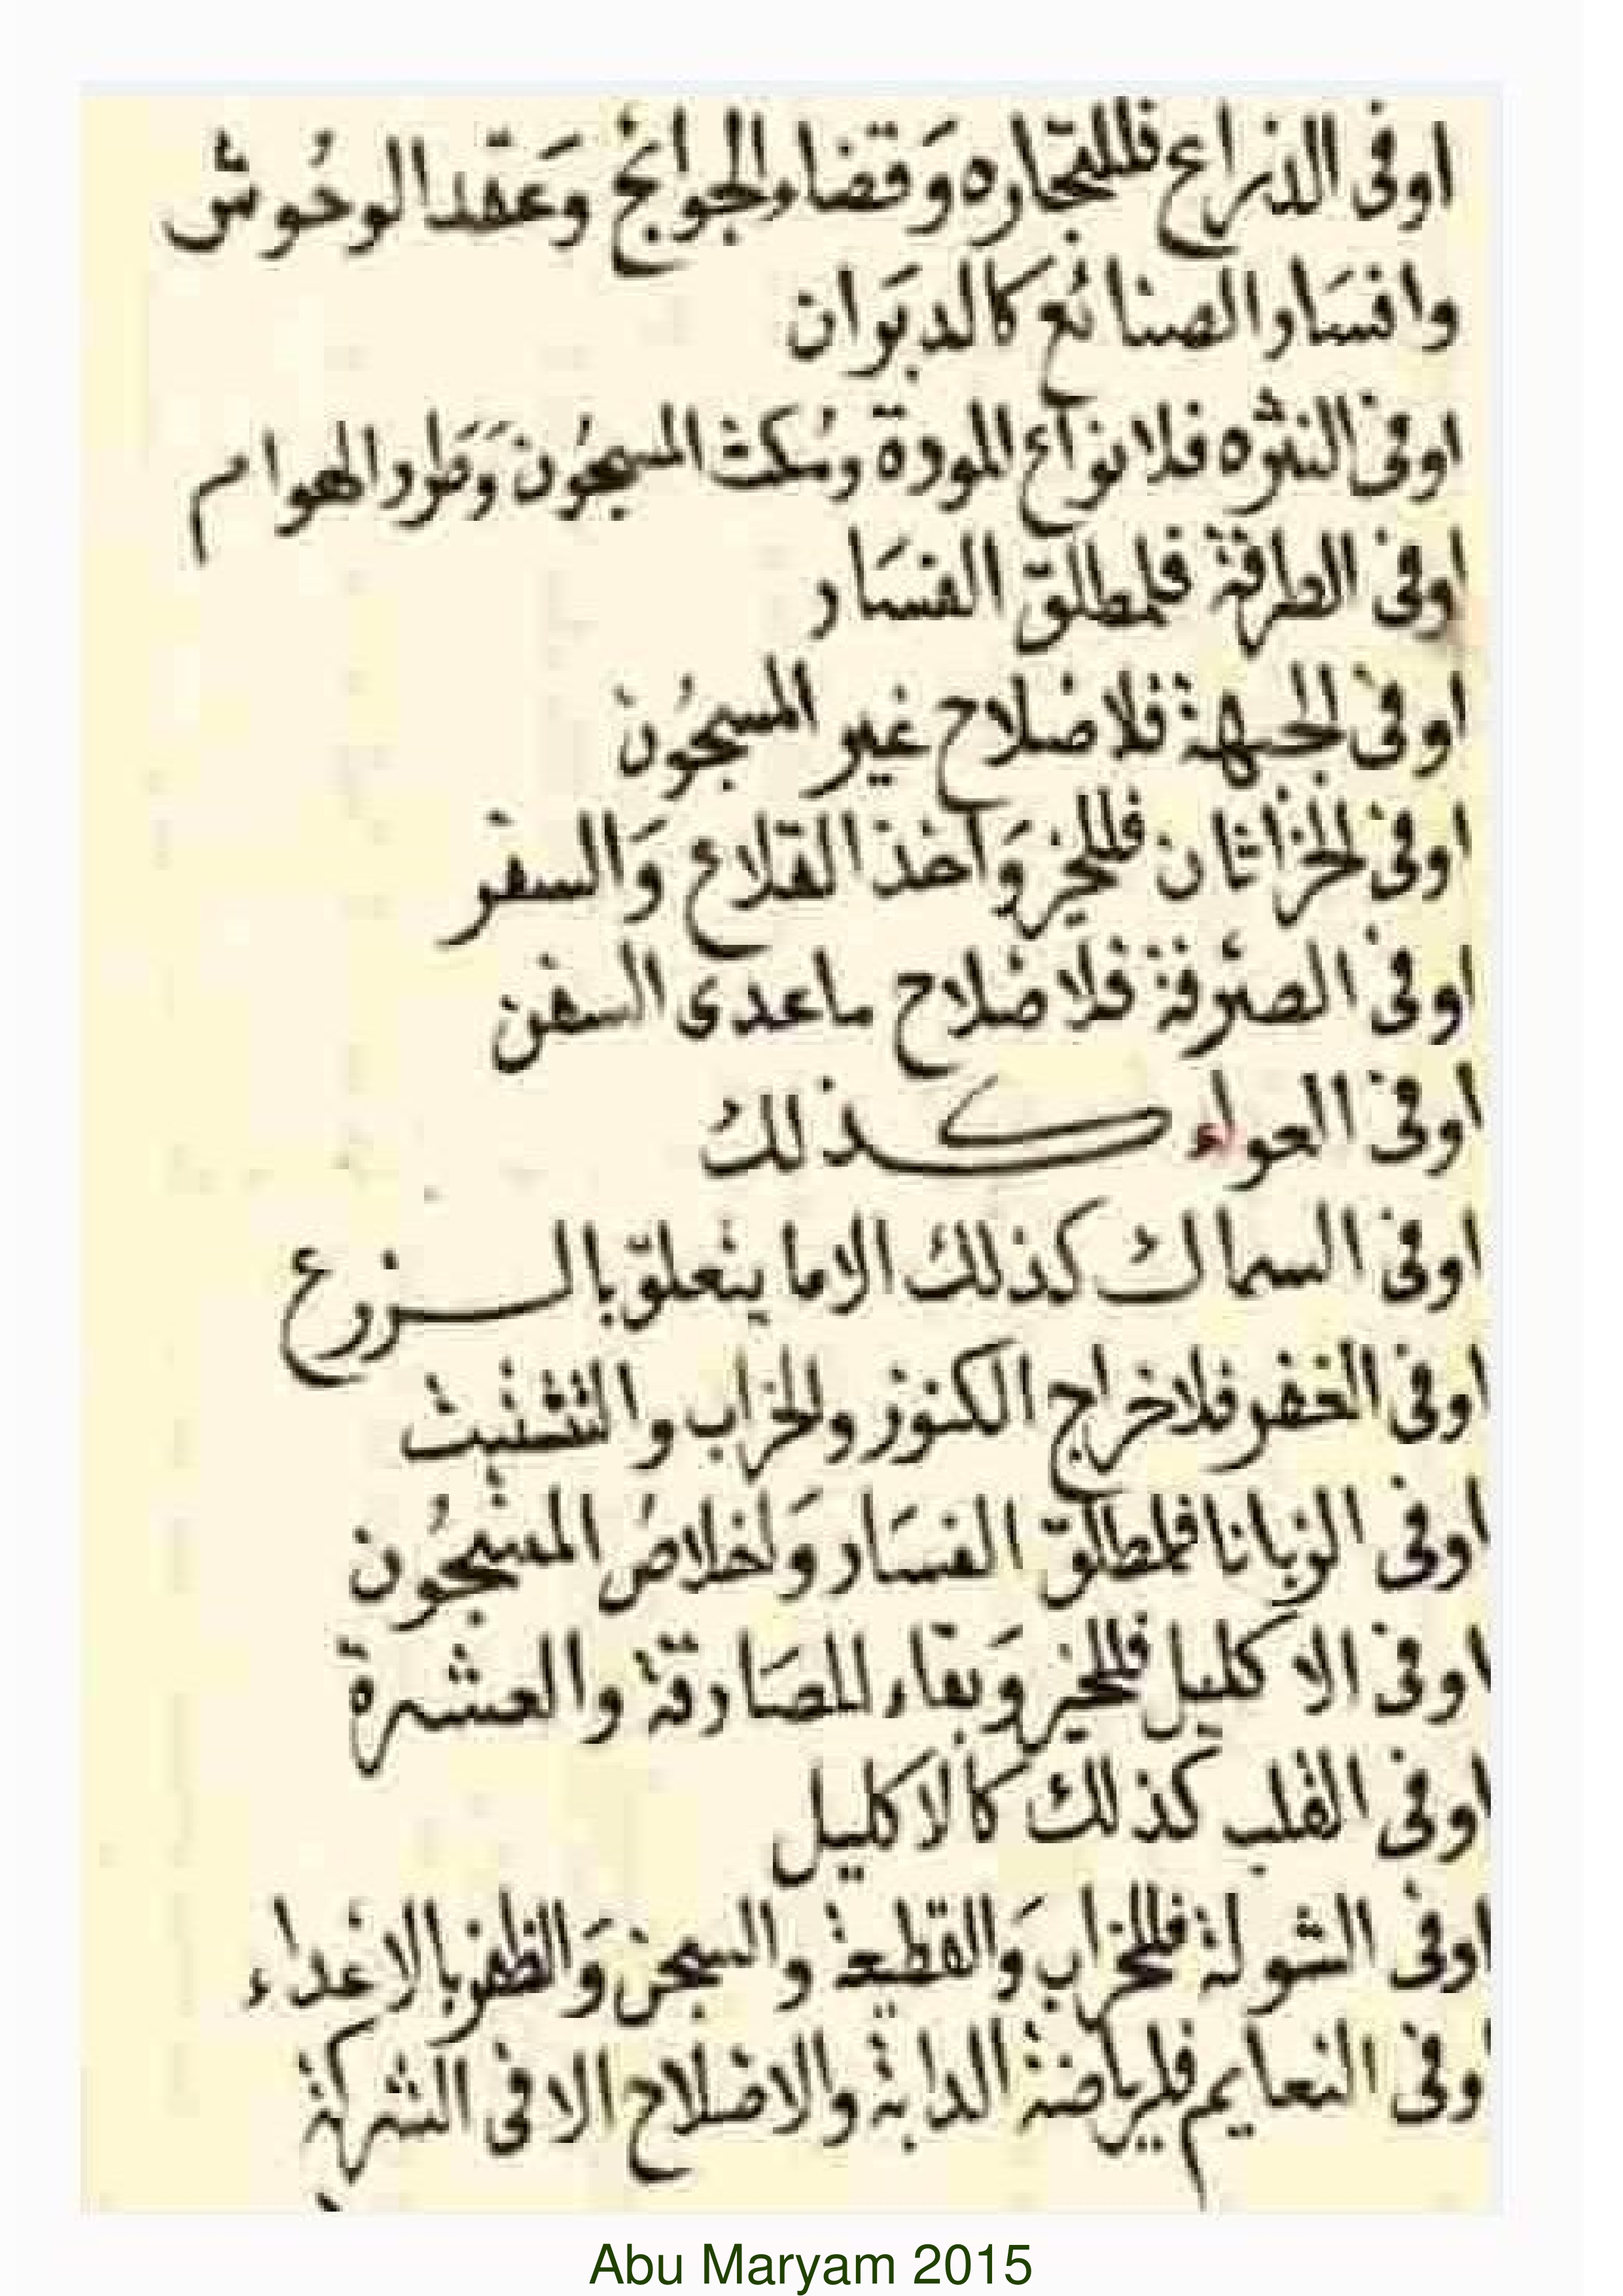 اوفى الذراع فللتجاره وقضاء الحوائج وعقد الوحوش
وافساد الصنائع كالدبران
اوفى النثره فلانواع المودة وسكت المسجون وطرد الهوام
اوفى الطرفة فلمطلق الفساد
اوفى الجبهة فلاصلاح غير المسجون
اوفى الخراثان فللخير واخذ القلاع والسفر
اوفى الصرفة فلاصلاح ماعدى السفن
اوفى العواء كذلك
اوفى السماك كذلك الاما يتعلق بالزرع
اوفى الغفر فلاخراج الكنوز والخراب والتشتيت
اوفى الزبانا فلمطلق الفساد واخلاص المسجون
اوفى الاكليل فللخير وبقاء للصادقة والعشرة
اوفى القلب كذلك كالاكليل
اوفى الشولة فللخراب والقطيعة والسجن والظفر بالاعداء
وفى النعايم فلرياضة الدابة والاصلاح الا فى الشركة
Abu Maryam 2015